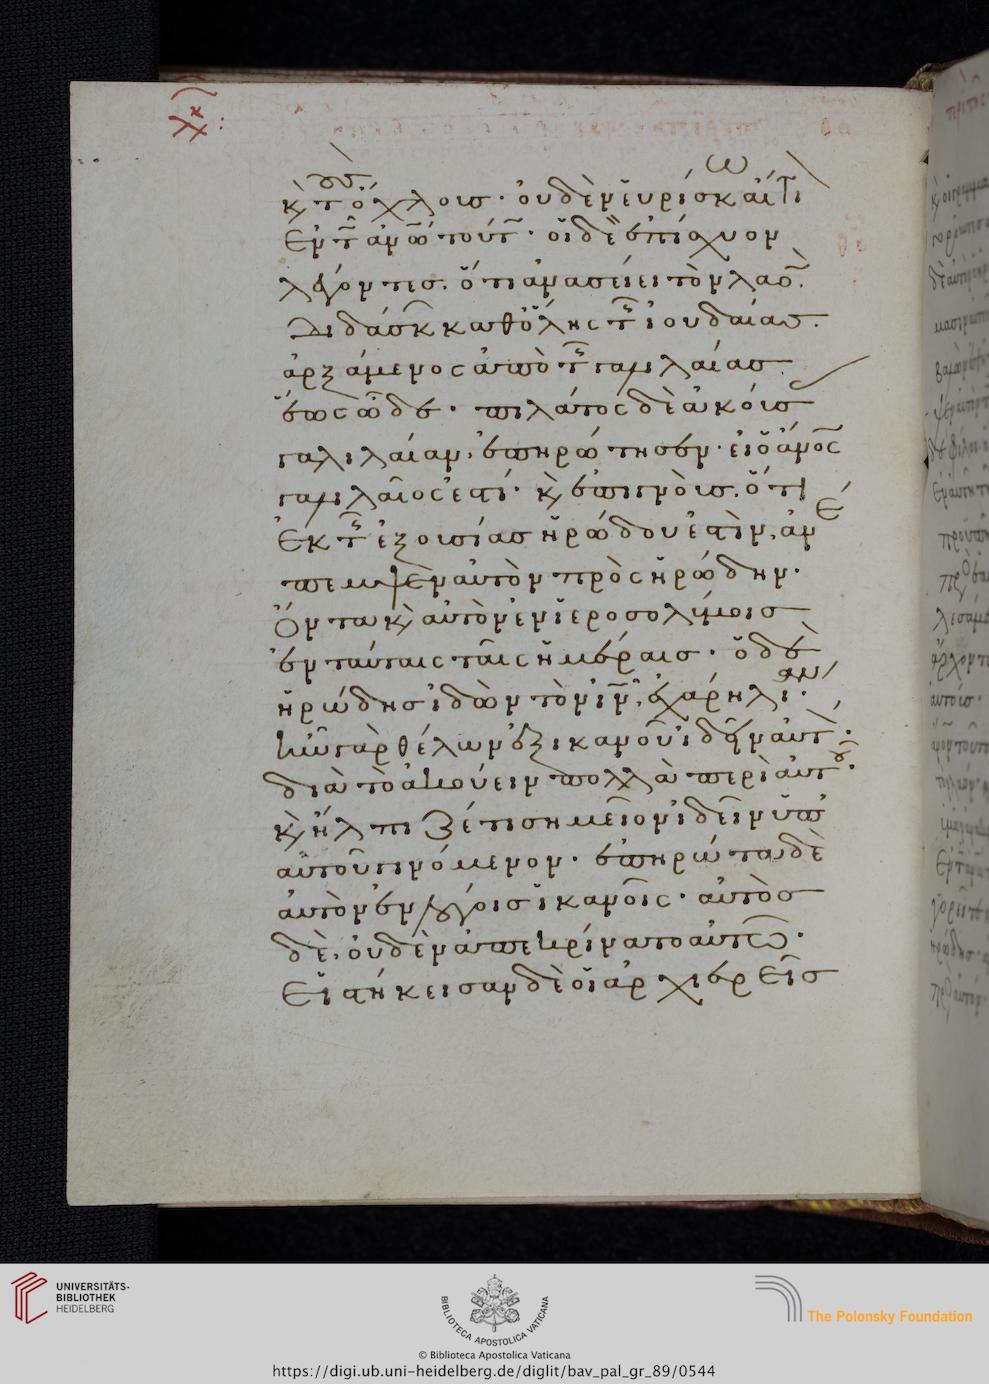 κ(αὶ) τοὺς ὄχλους· οὐδὲν εὑρίσκω αἴτιον
ἐν τῶ ἀν(θρώπ)ω τούτω· οἱ δὲ ἐπίσχυον
λέγοντες. ὅτι ἀνασείει τὸν λαόν.
διδάσκων καθόλης τῆς ἰουδαίας.
ἀρξάμενος ἀπὸ τῆς γαλιλαίας
ἕως ὧδε· πιλάτος δὲ ἀκούσας
γαλιλαίαν, ἐπηρώτησεν· εἰ ὁ ἄν(θρωπ)ος
γαλιλαῖος ἐστί· κ(αὶ) ἐπιγνοὺς. ὅτι
ἐκ τῆς ἐξουσίας ἡρώδου ἐστὶν, ἀνέ
πεμψεν αὐτὸν πρὸς ἡρώδην·
ὄντα κ(αὶ) αὐτὸν ἐν ἱεροσολύμοις
ἐν ταύταις ταῖς ἡμέραις· ὁ δὲ
ἡρώδης ἰδὼν τὸν ἰν, ἐχάρη λίαν·
ἦν γὰρ θέλων ἐξικανοῦ ἰδεῖν αὐτὸν·
διὰ τὸ ἀκούειν πολλὰ περὶ αὐτοῦ·
κ(αὶ) ἤλπιζέ τι σημεῖον ἰδεῖν ὑπ'
αὐτοῦ γινόμενον· ἐπηρώτα δὲ
αὐτὸν ἐν λόγοις ἱκανοῖς· αὐτὸς
δὲ, οὐδὲν ἀπεκρίνατο αὐτῶ·
εἱστήκεισαν δὲ οἱ ἀρχιερεῖς
UNIVERSITÄTS-
BIBLIOTHEK
HEIDELBERG
BIBLIOTECA APOSTOLICA VATICANA
The Polonsky Foundation
© Biblioteca Apostolica Vaticana
https://digi.ub.uni-heidelberg.de/diglit/bav_pal_gr_89/0544